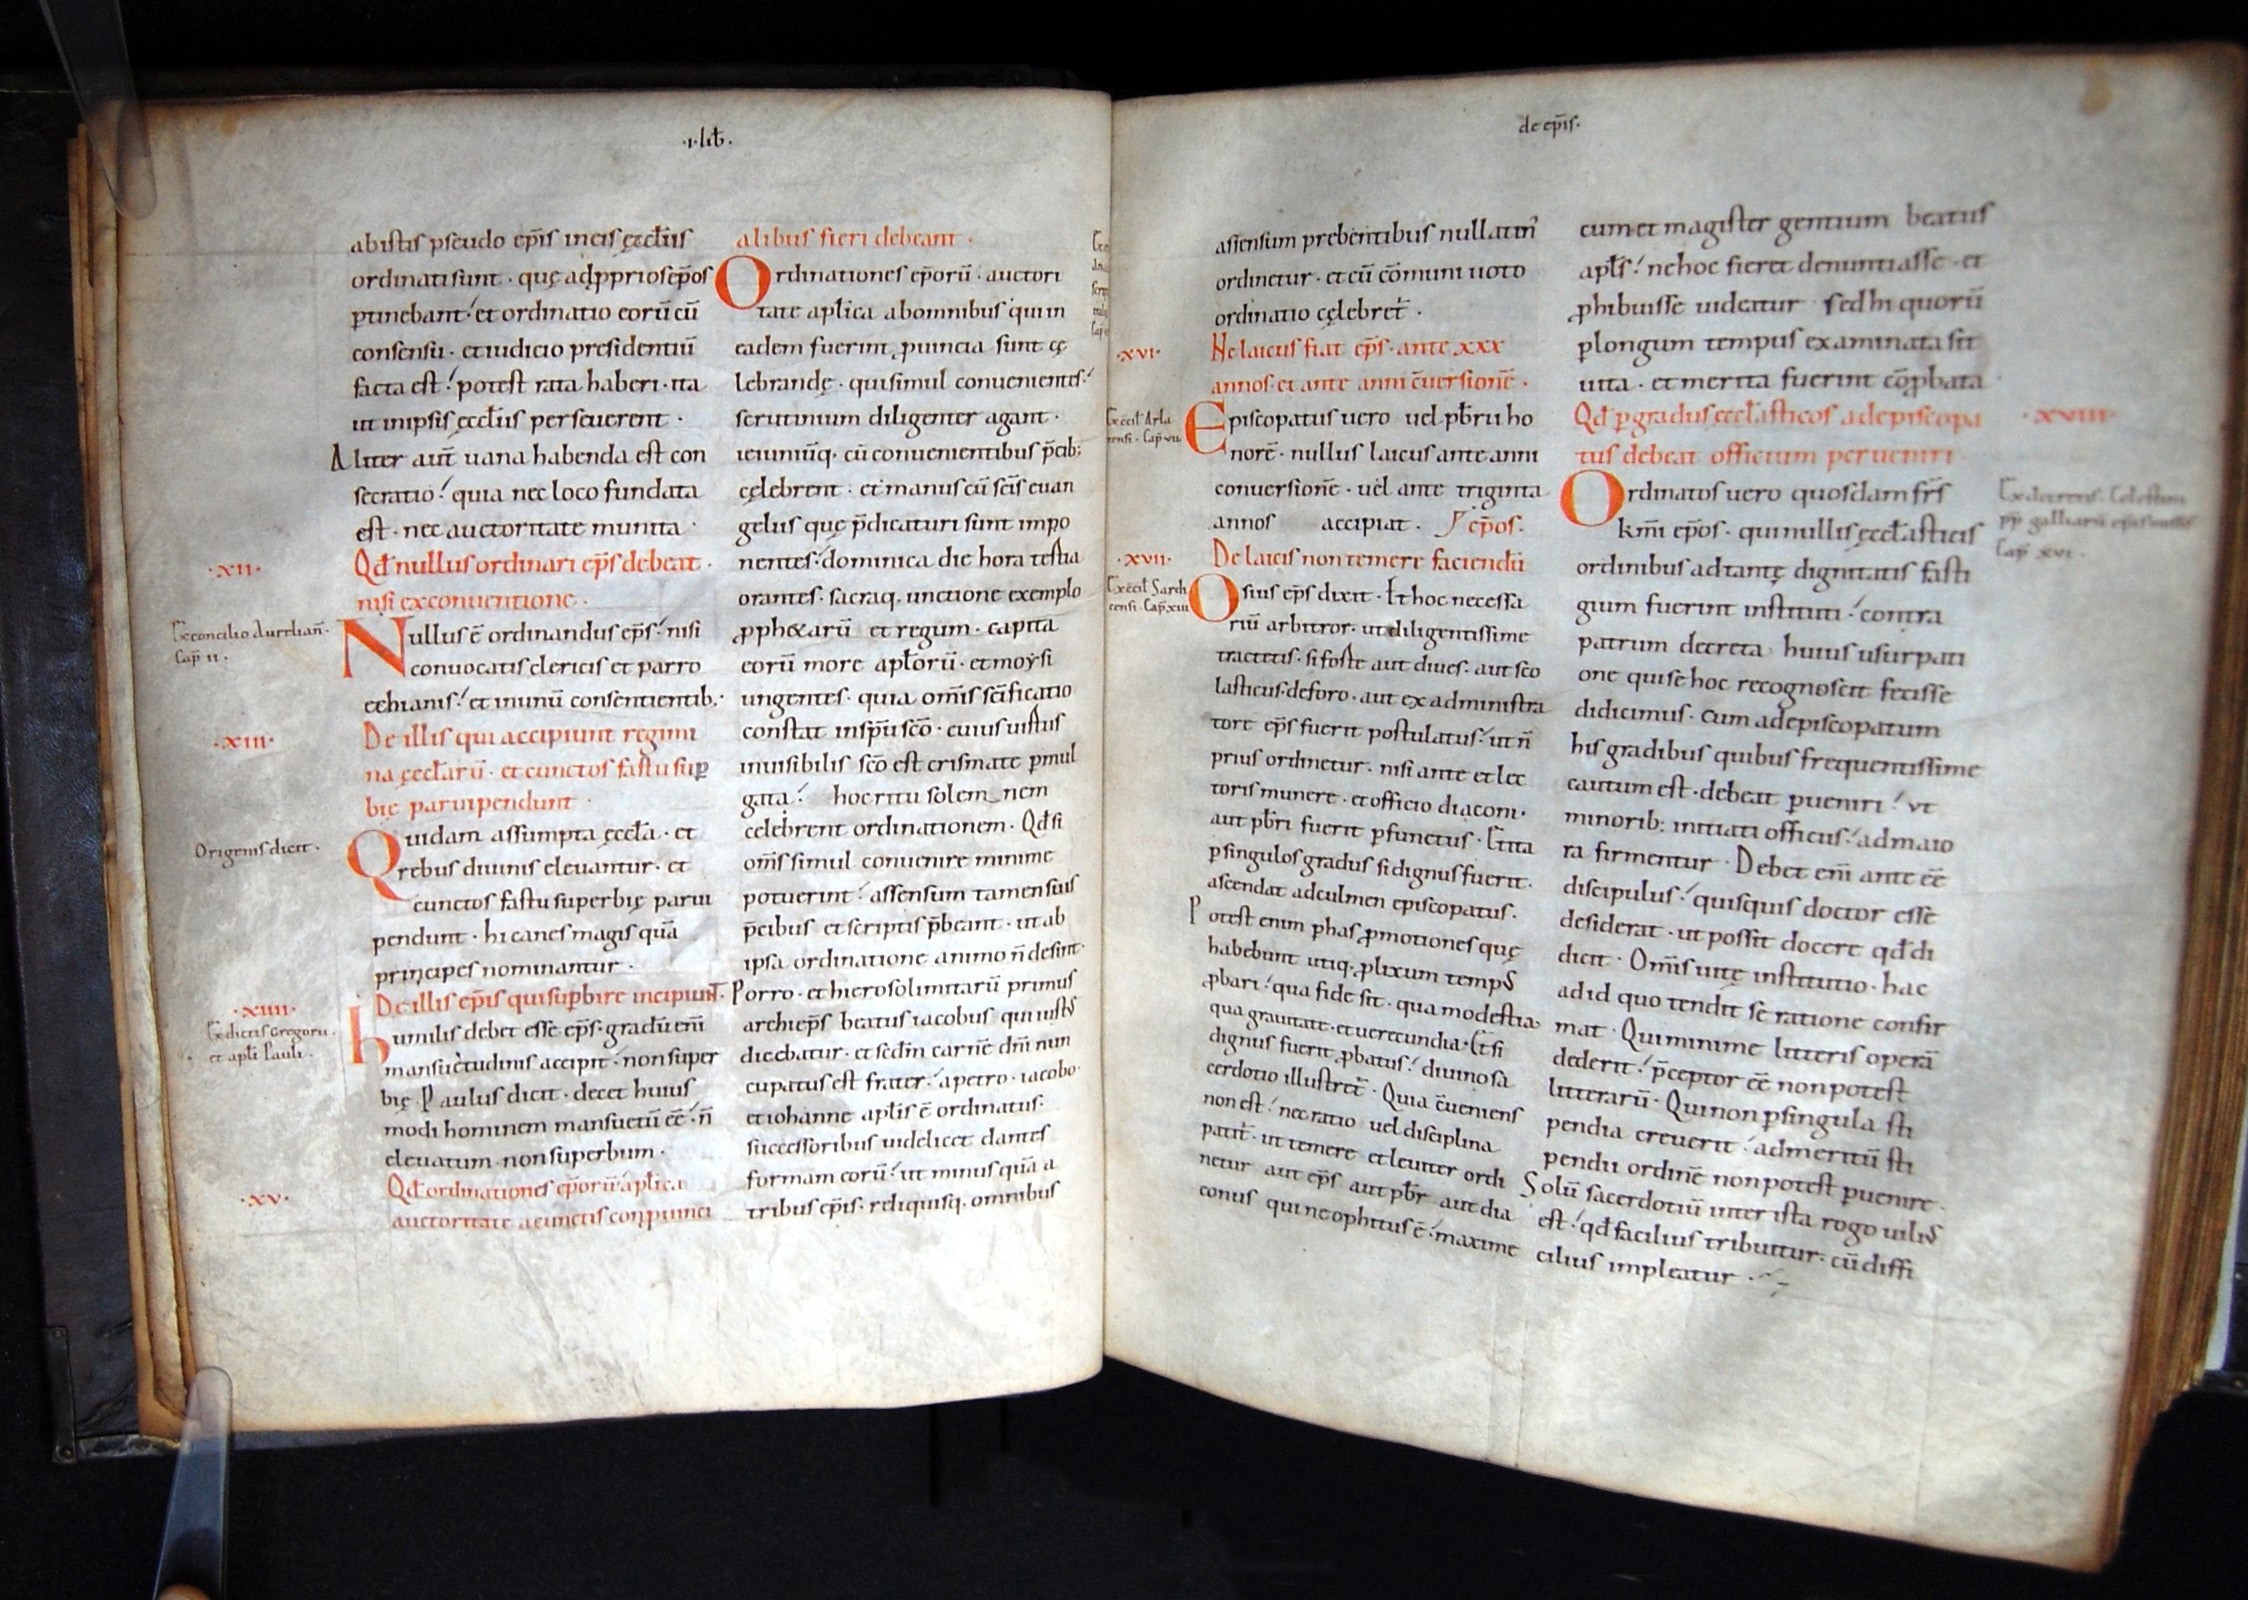 ·i·lib̄·
abistis pseudo ep̄is in eis ęccl̄iis
ordinati sunt · quę ad ꝓprios ep̄os
ꝑtinebant · et ordinatio eorū cū
consensu · et iudicio presidentiū
facta est · potest rata haberi · ita
ut in ipsis ęccl̄iis perseuerent ·
Aliter aut̄ uana habenda est con
secratio · quia nec loco fundata
est · nec auctoritate munita ·
·xii· Qd̄ nullus ordinari ep̄s debeat ·
nisi ex conuentione ·
Ex concilio Aurelian̄ ·
Cap̄ ii ·
Nullus ē ordinandus ep̄s · nisi
conuocatis clericis et parro
echianis · et in unū consentientib;
·xiii· De illis qui accipiunt regimi
na ęccl̄arū · et cunctos fastu suꝑ
bię paruipendunt ·
Origenis dicit ·
Quidam assumpta ęccl̄a · et
rebus diuinis eleuantur · et
cunctos fastu superbię parui
pendunt · hi canes magis quā
principes nominantur ·
·xiiii· De illis ep̄is qui suꝑbire incipiunt ·
Ex dictis Gregorii ·
et apl̄i Pauli ·
humilis debet esse ep̄s · gradū eni̅
mansuetudinis accipit · non super
bię · Paulus dicit · decet huius
modi hominem mansuetū eē̄ · n̄
eleuatum non superbum ·
·xv· Qd̄ ordinationes ep̄orū aplica
auctoritate a cunctis conprouinci
alibus fieri debeant ·
Ordinationes ep̄orū · auctori
tate aplica ab omnibus qui in
eadem fuerint ꝓuincia sunt cę
lebrandę · qui simul conuenientes ·
scrutinium diligenter agant ·
ieiuniūq · cū conuenientibus p̄cib;
cęlebrent · et manus cū sc̄is euan
geliis quę p̄dicaturi sunt impo
nentes · dominica die hora testia
orantes · sacraq · unctione exemplo
ꝓph&arū et regum · capita
eorū more apl̄orū · et moẏsi
ungentes · quia om̄is sc̄ificatio
constat in sp̄u sc̄o · cuius uirtus
inuisibilis sc̄o est crismate ꝑmul
gata · hoc ritu solem nem
celebrent ordinationem · Qd̄ si
om̄s simul conuenire minime
potuerint · assensum tamen suis
p̄cibus et scriptis p̄beant · ut ab
ipsa ordinatione animo n̄ desint ·
Porro · et hierosolimitarū primus
archiep̄s beatus iacobus qui iustus
dicebatur · et secd̄m carnē dn̄i nun
cupatus est frater · a petro · iacobo
et iohanne apl̄is ē ordinatus ·
successoribus uidelicet dantes
formam eorū · ut minus quā a
tribus ep̄is · reliquisq · omnibus
de ep̄is ·
assensum prebentibus nullatin̄
ordinetur · et cū cōmuni uoto
ordinatio cęlebret̄ ·
·xvi· Ne laicus fiat ep̄s · ante xxx
annos et ante anni c̄uersionē ·
Ex c̄cil̄ Arla
tensi · Cap̄ vii
Episcopatus uero uel pb̄rii ho
norē · nullus laicus ante anni
conuersionē · uel ante triginta
annos accipiat · ep̄os ·
·xvii· De laicis non temere faciendū
Ex c̄cil̄ Sardi
censi · Cap̄ xiii
Osius ep̄s dixit · Et hoc necessa
riū arbitror · ut diligentissime
tractetis · si forte aut diues · aut sco
lasticus de foro · aut ex administra
tore ep̄s fuerit postulatus · ut n̄
prius ordinetur · nisi ante et lec
toris munere · et officio diaconi ·
aut pb̄ri fuerit ꝑfunctus · Et ita
ꝑ singulos gradus si dignus fuerit ·
ascendat ad culmen episcopatus ·
Potest enim ꝑ has ꝓmotiones quę
habebunt utiq · ꝓlixum tempus
ꝓbari · qua fide sit · qua modestia ·
qua grauitate · et uerecundia · Et si
dignus fuerit ꝓbatus · diuino sa
cerdotio illustret̄ · Quia c̄ueniens
non est · nec ratio uel disciplina
patit̄ · ut temere et leuiter ordi
netur aut ep̄s aut pb̄r aut dia
conus qui neophitus ē · maxime
cum et magister gentium beatus
apl̄s · ne hoc fieret denuntiasse · et
ꝓhibuisse uideatur sed hi quorū
ꝑ longum tempus examinata sit
uita · et merita fuerint cōꝓbata
Qd̄ ꝑ gradus ęccl̄asticos ad episcopa ·xviii·
tus debeat officium perueniri ·
Ex decretis Celestini
pp̄ galliarū ep̄is
Cap̄ xvi ·
Ordinatos uero quosdam fr̄s
km̄i ep̄os · qui nullis ęccl̄asticis
ordinibus ad tantę dignitatis fasti
gium fuerint instituti · contra
patrum decreta huius usurpati
one qui se hoc recognoscit fecisse
didicimus · cum ad episcopatum
his gradibus quibus frequentissime
cautum est · debeat ꝑueniri · ut
minorib; initiati officiis · ad maio
ra firmentur · Debet eni̅ ante eē̄
discipulus · quisquis doctor esse
desiderat · ut possit docere qd̄ di
dicit · Om̄is uitę institutio · hac
ad id quo tendit se ratione confir
mat · Qui minime litteris operā
dederit · p̄ceptor eē̄ non potest
litterarū · Qui non ꝑ singula sti
pendia creuerit · ad meritū sti
pendii ordinē non potest ꝑuenire ·
Solū sacerdotiū inter ista rogo uilius
est · qd̄ facilius tribuitur · cū diffi
cilius impleatur ·